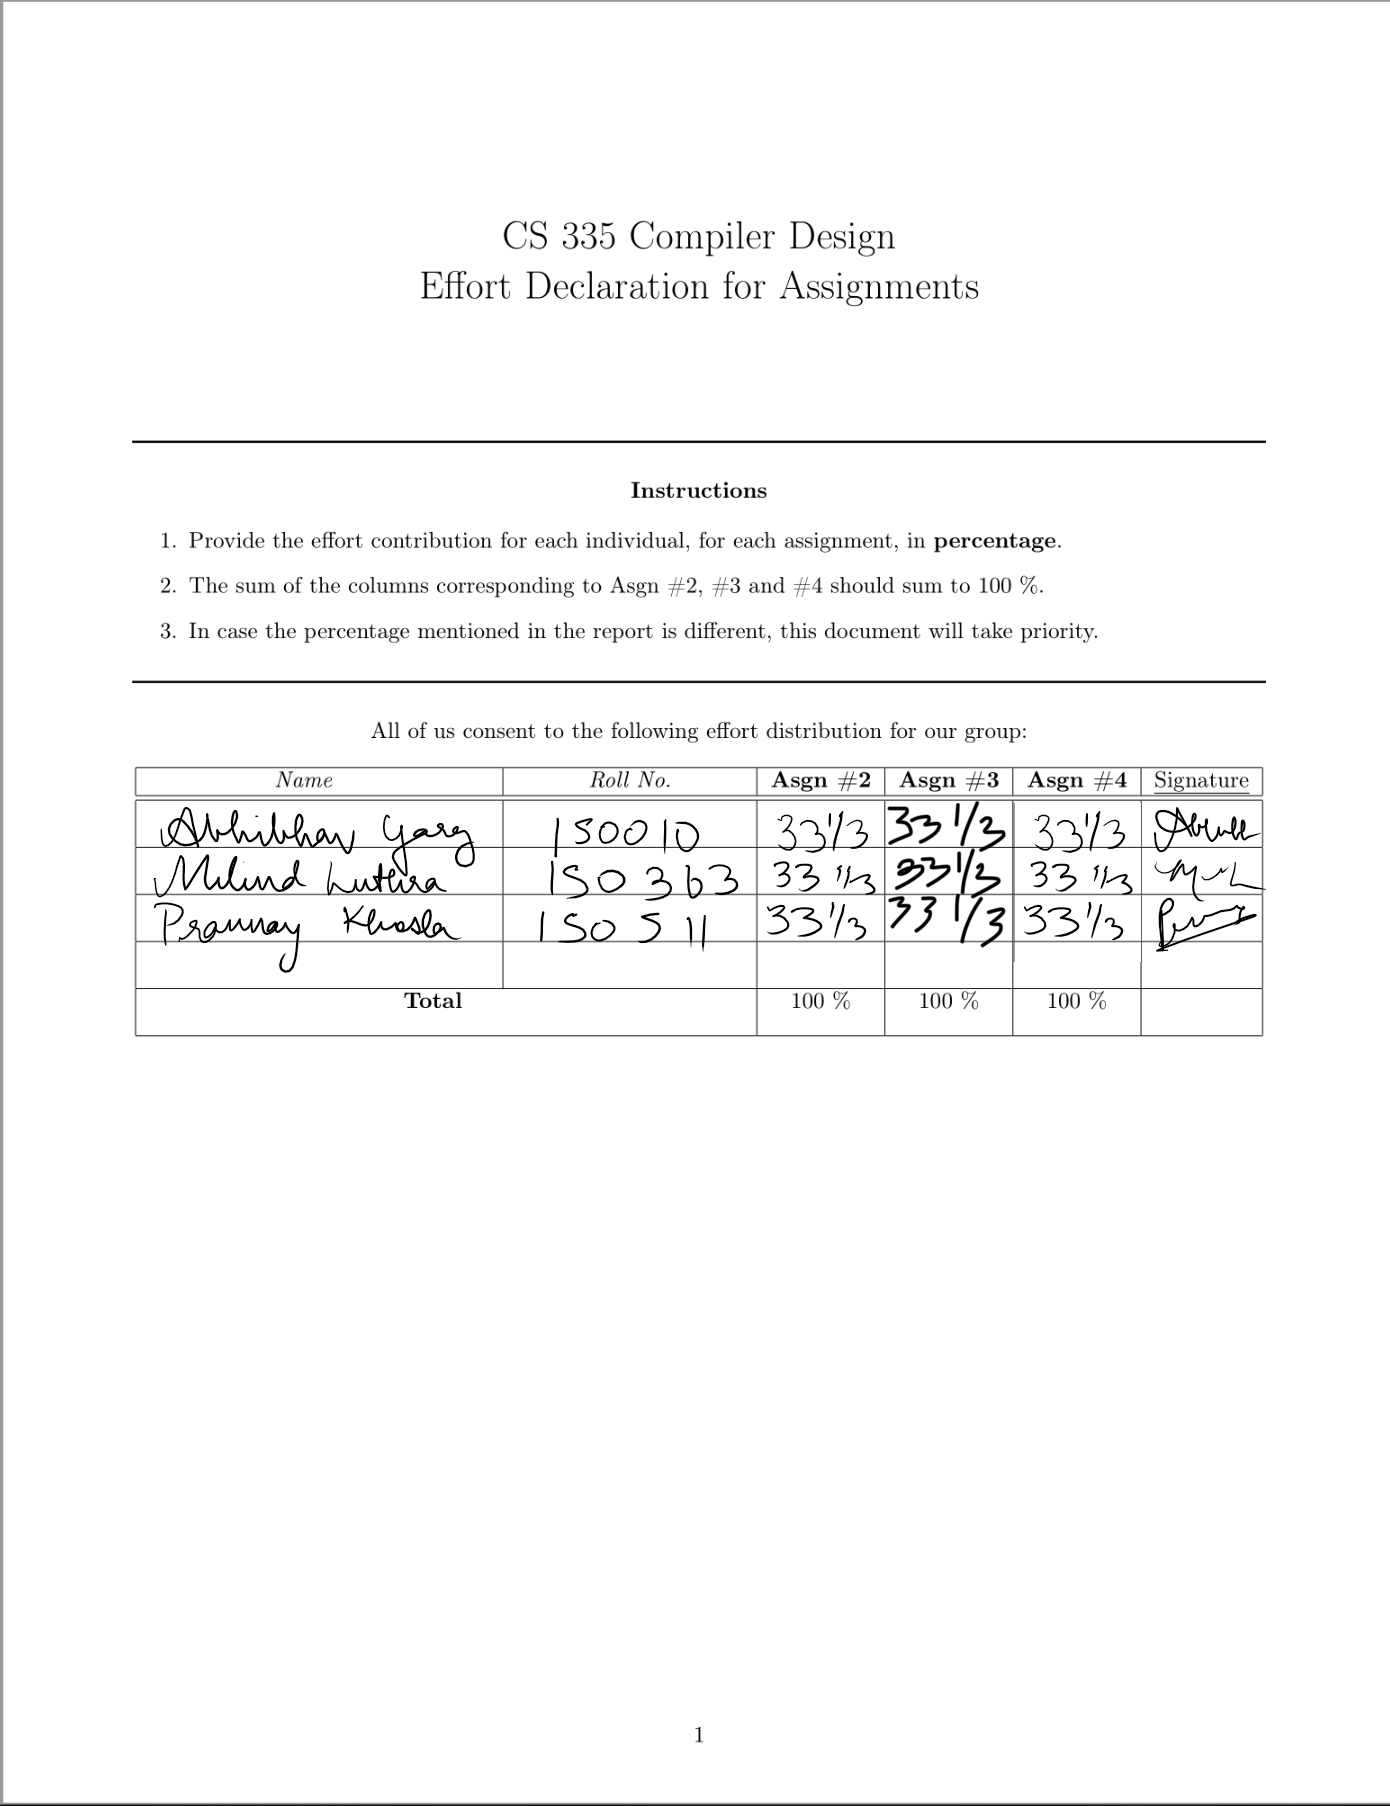 CS 335 Compiler Design
Effort Declaration for Assignments
Instructions
1. Provide the effort contribution for each individual, for each assignment, in percentage.
2. The sum of the columns corresponding to Asgn #2, #3 and #4 should sum to 100 %.
3. In case the percentage mentioned in the report is different, this document will take priority.
All of us consent to the following effort distribution for our group:
Name Roll No. Asgn #2 Asgn #3 Asgn #4 Signature
Abhibhav Garg 150010 33 1/3 33 1/3 33 1/3
Milind Luthra 150363 33 1/3 33 1/3 33 1/3
Prannay Khosla 150511 33 1/3 33 1/3 33 1/3
Total 100 % 100 % 100 %
1